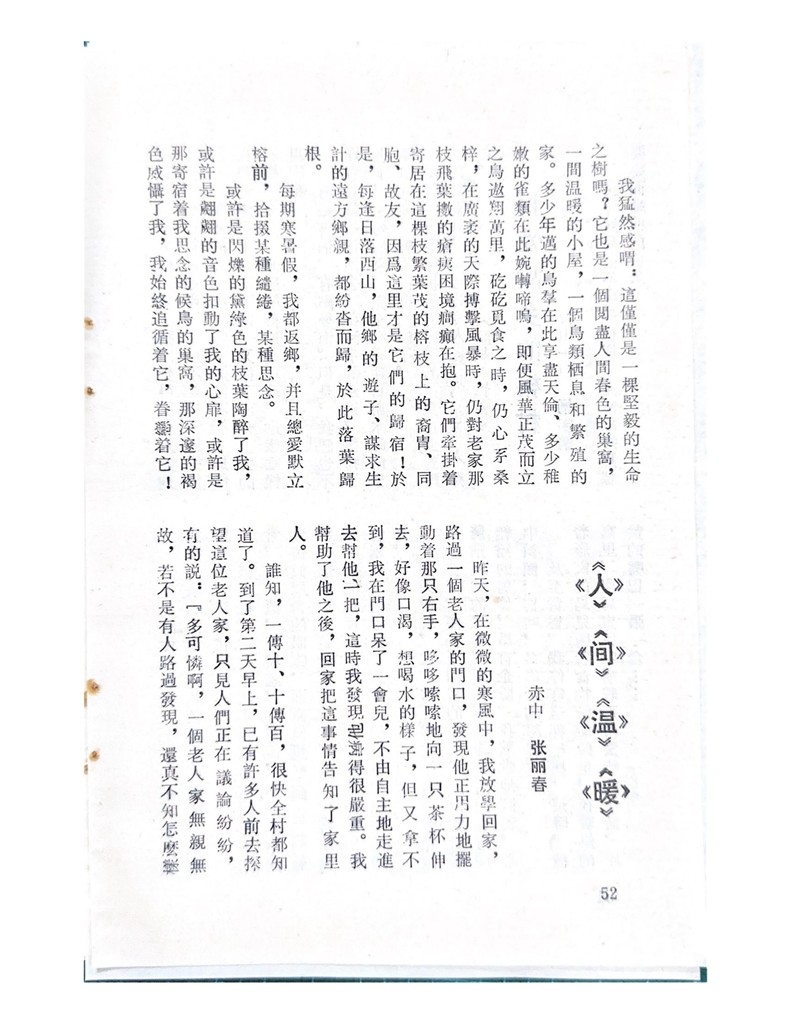 我猛然感喟：這僅僅是一棵堅毅的生命
之樹嗎？它也是一個閱盡人間春色的巢窩，
一間温暖的小屋，一個鳥類栖息和繁殖的
家。多少年邁的鳥羣在此享盡天倫、多少稚
嫩的雀類在此婉囀啼鳴，即便風華正茂而立
之鳥遨翔萬里，矻矻覓食之時，仍心系桑
梓，在廣袤的天際搏擊風暴時，仍對老家那
枝飛葉撒的瘡痍困境痌癏在抱。它們牽掛着
寄居在這棵枝繁葉茂的榕枝上的裔胄、同
胞、故友，因爲這里才是它們的歸宿！於
是，每逢日落西山，他鄉的遊子、謀求生
計的遠方鄉親，都紛沓而歸，於此落葉歸
根。
每期寒暑假，我都返鄉，并且總愛默立
榕前，拾掇某種繾綣，某種思念。
或許是閃爍的黛綠色的枝葉陶醉了我，
或許是翩翩的音色扣動了我的心扉，或許是
那寄宿着我思念的候鳥的巢窩，那深邃的褐
色感懾了我，我始終追循着它，眷戀着它！
《人》《间》《温》《暖》
赤中 张丽春
昨天，在微微的寒風中，我放學回家，
路過一個老人家的門口，發現他正用力地擺
動着那只右手，哆哆嗦嗦地向一只茶杯伸
去，好像口渴，想喝水的樣子，但又拿不
到，我在門口呆了一會兒，不由自主地走進
去幫他一把，這時我發現他病得很嚴重。我
幫助了他之後，回家把這事情告知了家里
人。
誰知，一傳十、十傳百，很快全村都知
道了。到了第二天早上，已有許多人前去探
望這位老人家，只見人們正在議論紛紛，
有的説：『多可憐啊，一個老人家無親無
故，若不是有人路過發現，還真不知怎麽
52